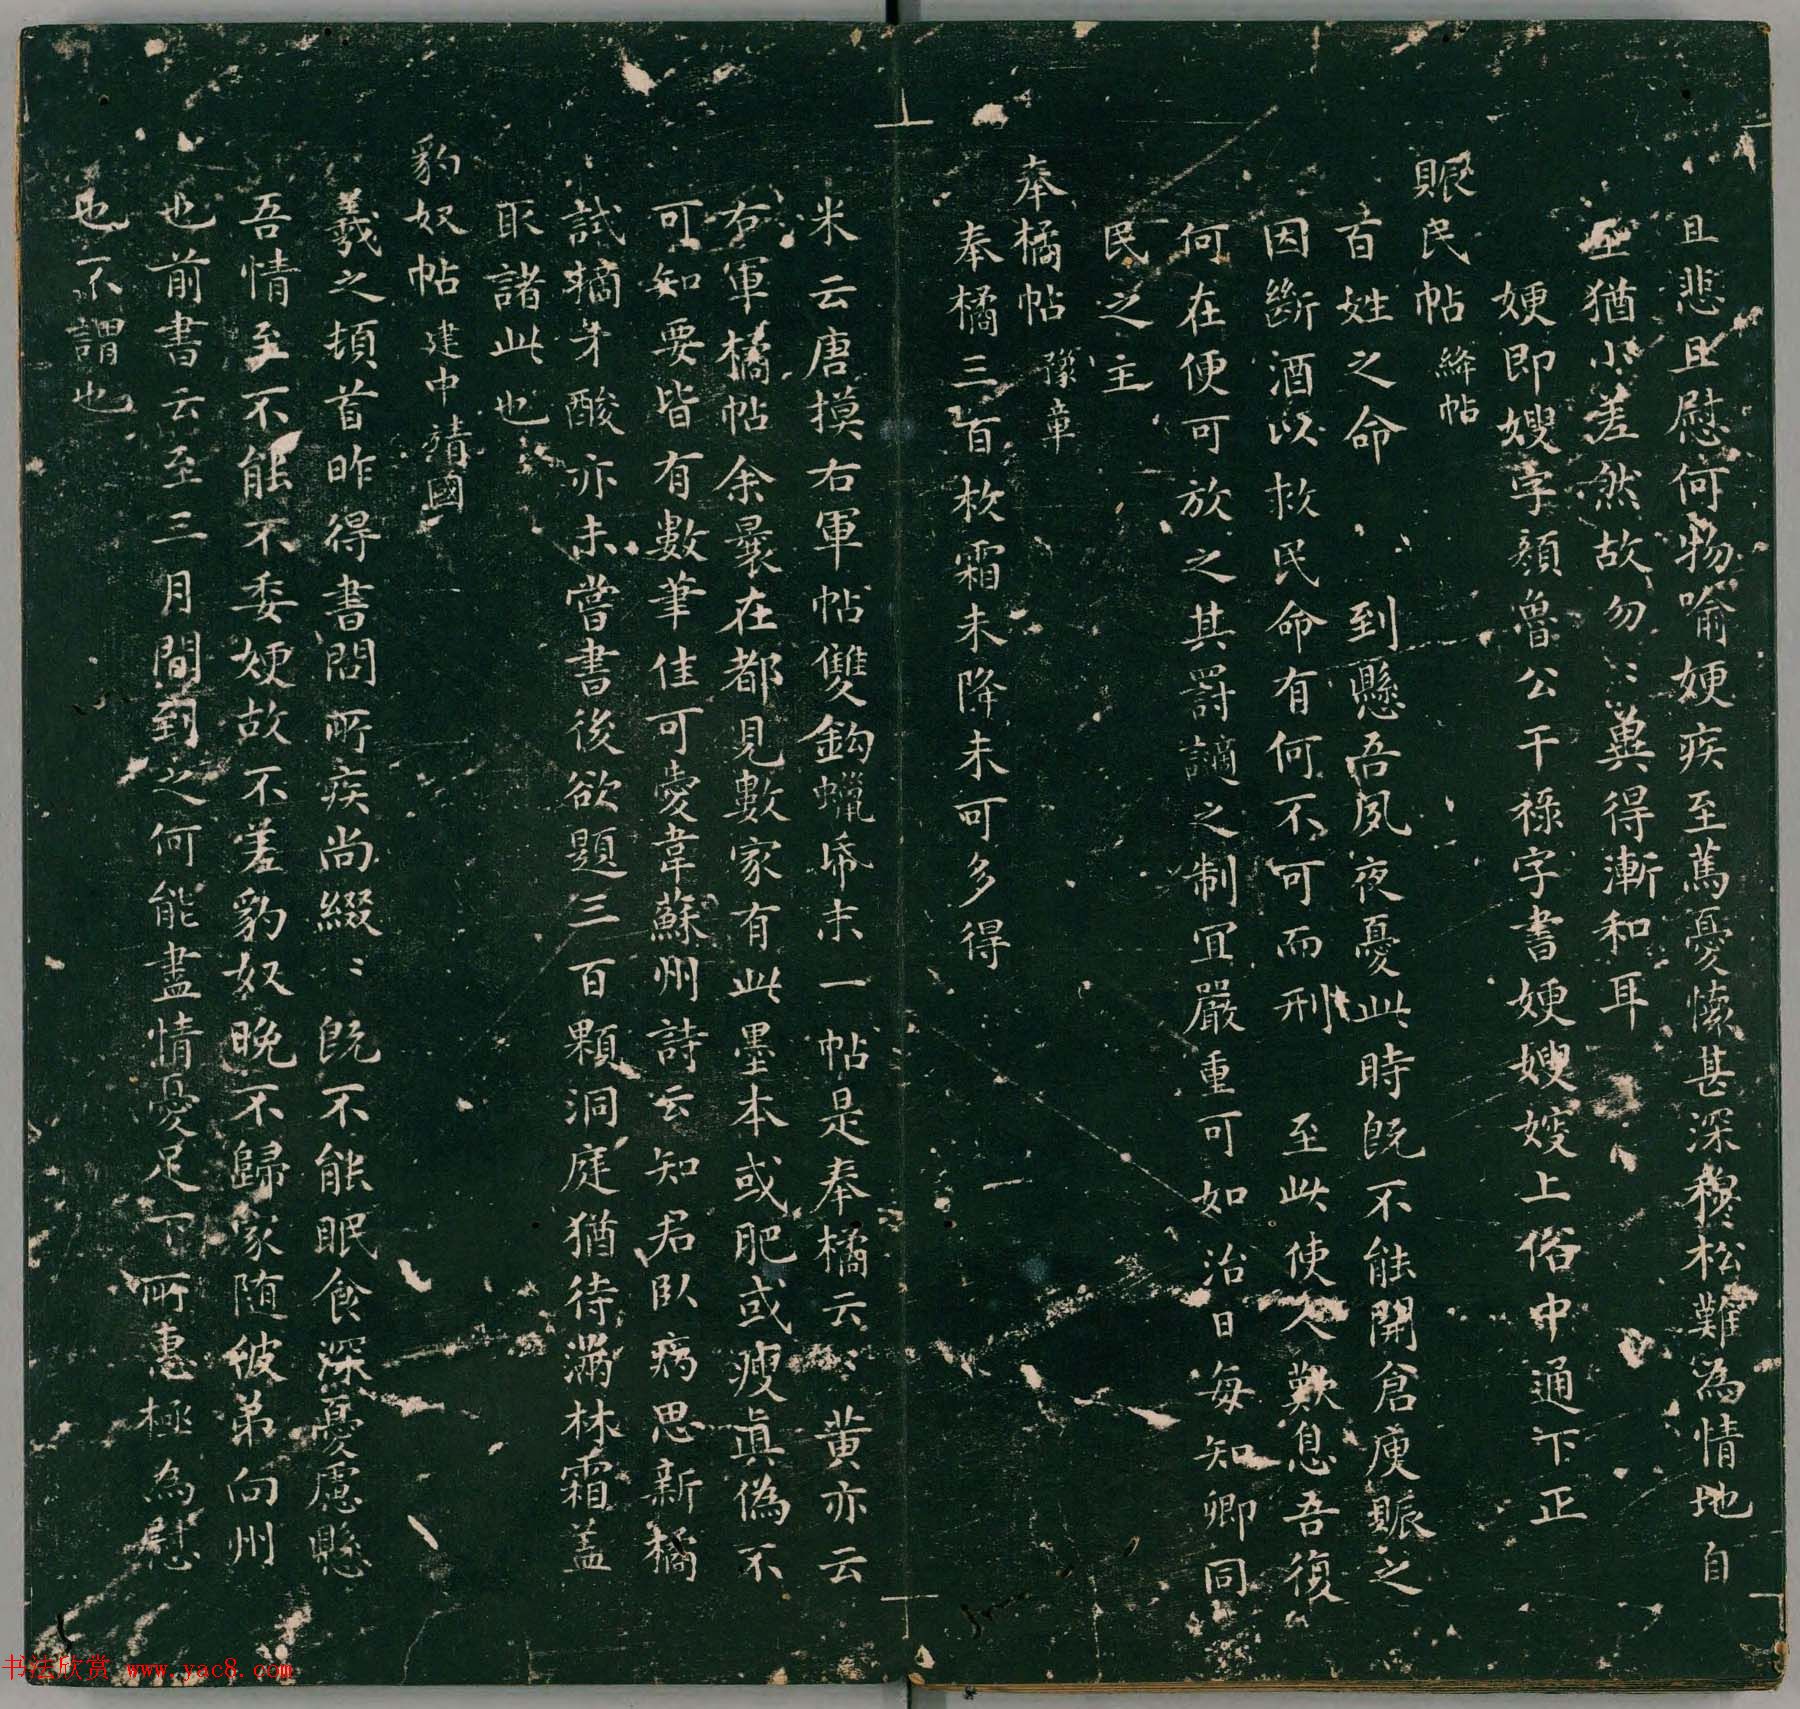 且悲且慰何物喻㛐疾至篤憂懷甚深穆松難為情地自
至猶小差然故勿〻冀得漸和耳
㛐即嫂字顏魯公干祿字書㛐嫂嫂上俗中通下正
賑民帖 絳帖
百姓之命 到懸吾夙夜憂此時既不能開倉庾賑之
因斷酒以救民命有何不可而刑 至此使人歎息吾復
何在便可放之其罰謫之制宜嚴重可如治日每知卿同
民之主
奉橘帖 豫章
奉橘三百枚霜未降未可多得
米云唐摸右軍帖雙鈎蠟帋末一帖是奉橘云〻黄亦云
右軍橘帖余曩在都見數家有此墨本或肥或瘦眞偽不
可知要皆有數筆佳可愛韋蘇州詩云知君臥病思新橘
試摘才酸亦未嘗書後欲題三百顆洞庭猶待滿林霜盖
取諸此也
豹奴帖 建中靖國
羲之頓首昨得書問所疾尚綴〻既不能眠食深憂慮懸
吾情至不能不委㛐故不差豹奴晚不歸家随彼弟向州
也前書云至三月間到之何能盡情憂足下所惠極為慰
也不謂也
书法欣赏 www.yac8.com